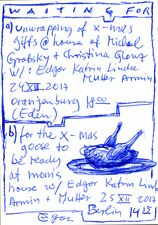 WAITING FOR
a) unwrapping of X-mas
gifts @ house of Michel
Gratsky + Christina Glanz
W/: Edgar Katrin Linda
Mutter Armin
24 XII 2017
Oranjenburg 18:00
(Eden)
b) for the X-mas
goose to
be ready
at moms
house w/ Edgar Katrin Linda
Armin + Mutter 25 XII 2017
Berlin 14